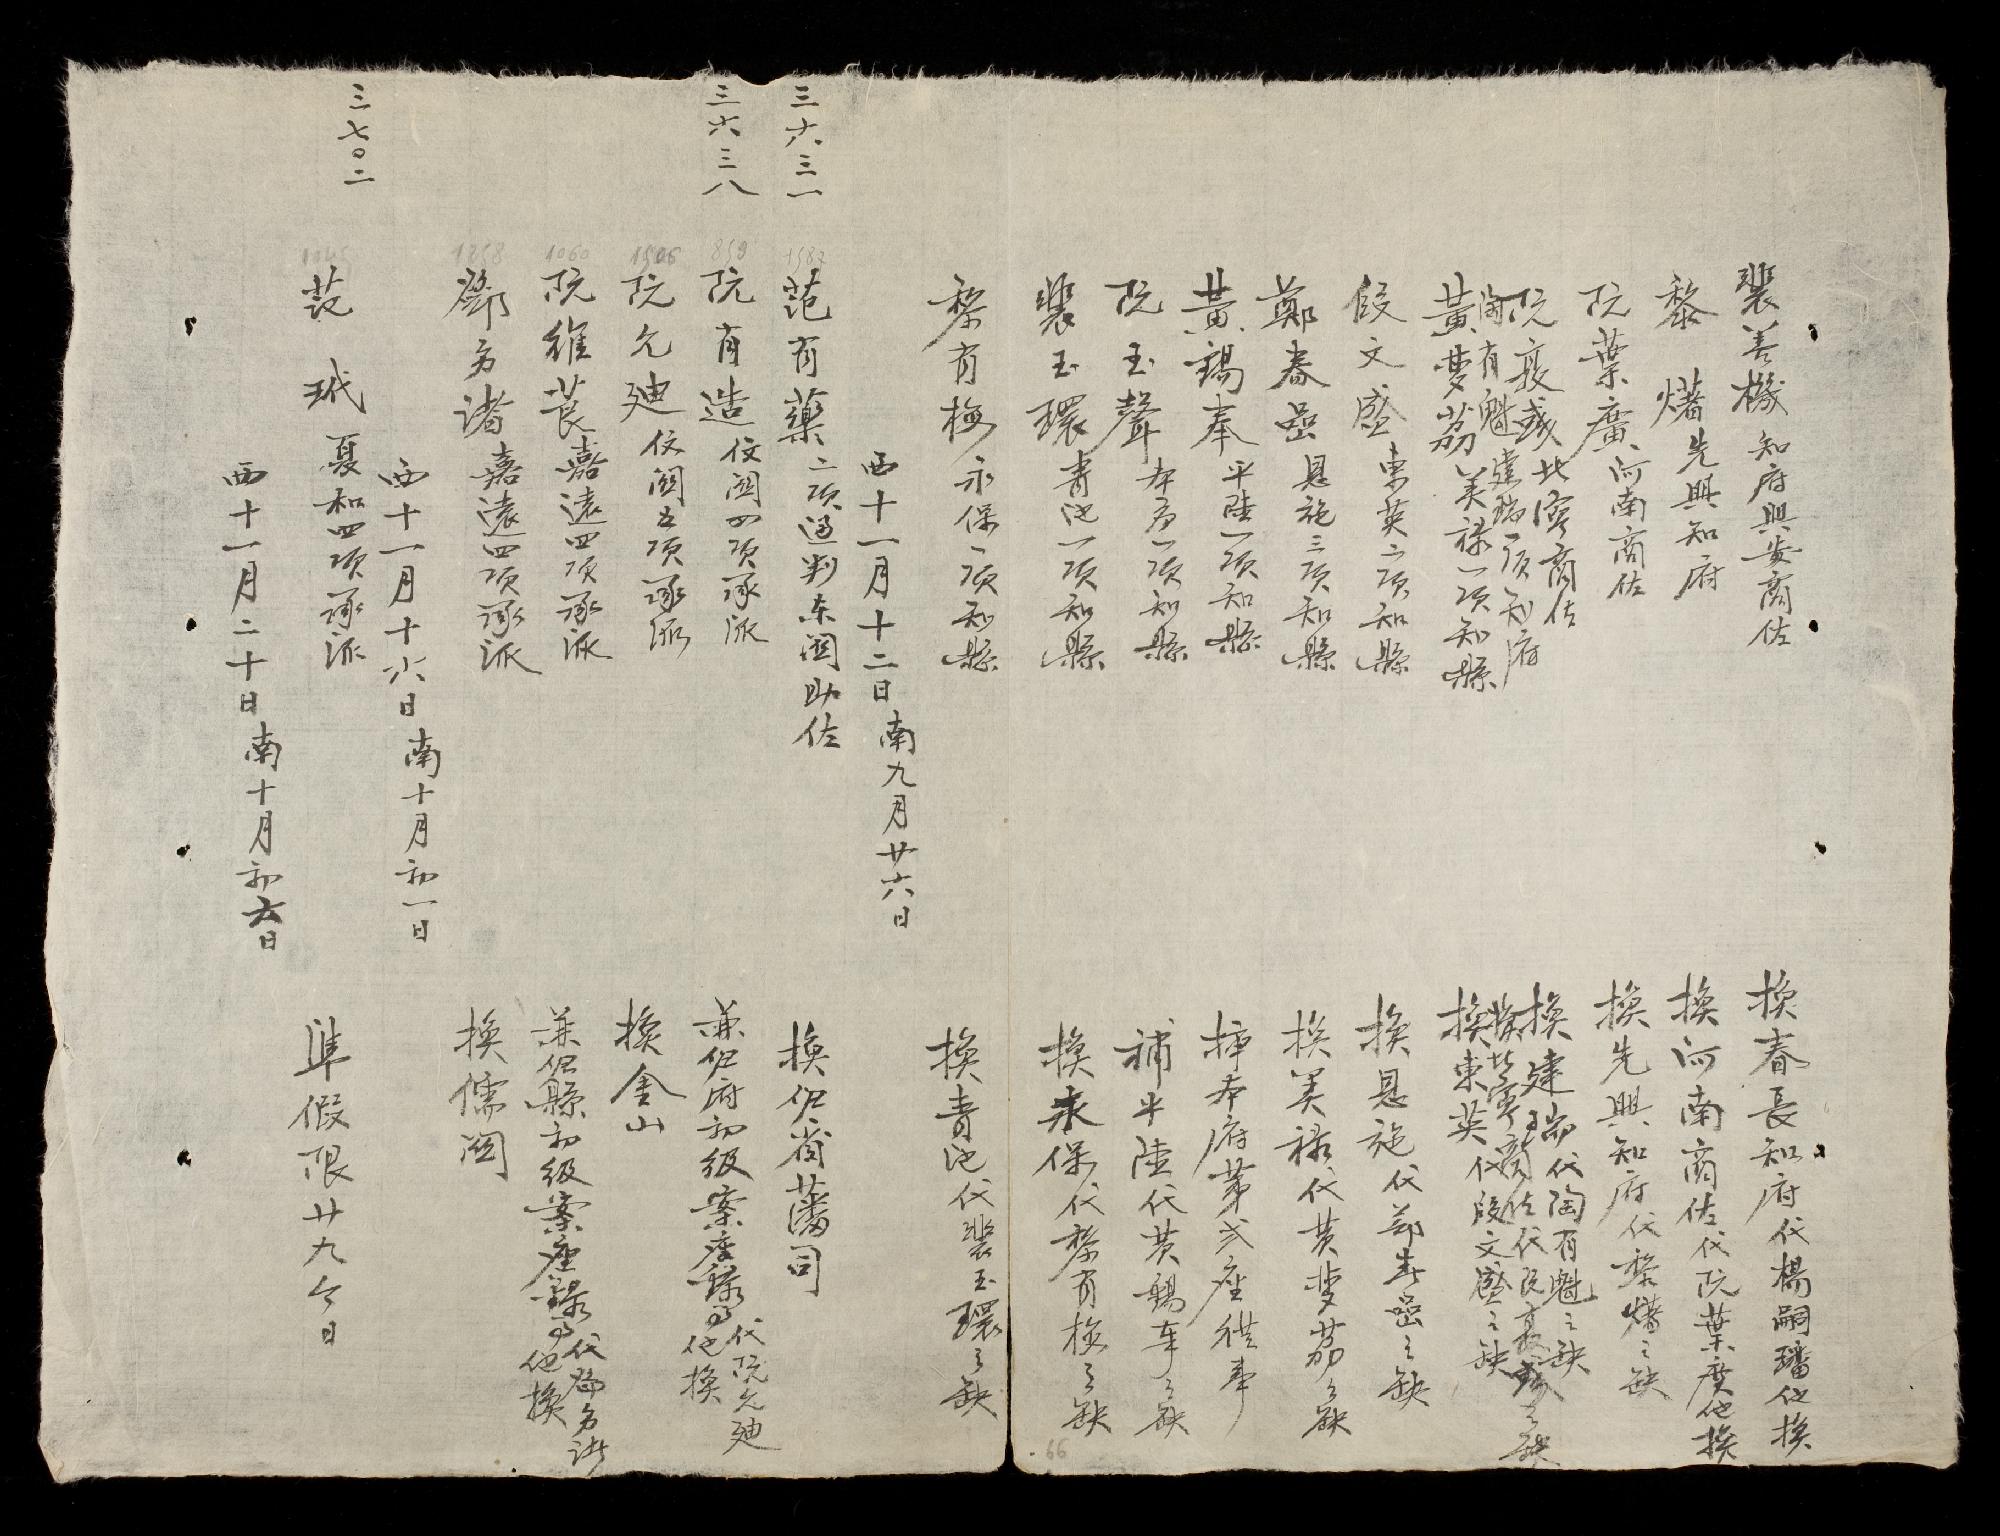 裴善機知府興安商佐 換春長知府代楊嗣璠他換
黎 㷮先興知府 換河南商佐代阮葉廣他換
阮葉廣河南商佐 換先興知府代黎㷮之缺
阮敦 北寧商佐 換建瑞代陶有魁之缺
陶有魁建瑞一項知府 換北寧商佐代阮敦 之缺
黃夢荔美祿一項知縣 換東英代段文盛之缺
段文盛東英二項知縣 換恩施代鄭春 之缺
鄭春 恩施三項知縣 換美祿代黃夢荔之缺
黃錫奉平陸一項知縣 府第弍座供事
阮玉聲 一項知縣 補平陸代黃錫奉之缺
裴玉環青池一項知縣 換永保代黎有梅之缺
黎有梅永保一項知縣 換青池代裴玉環之缺
西十一月十二日南九月廿六日
三六三一 1587 范有藥二項通判东 助佐 換 省藩司
三六三八 859 阮有造 四項承派 兼 府初級案座錄事代阮允廸他換
1506 阮允廸 五項承派 換金山
1060 阮維莨嘉遠四項承派 兼 縣初級案座錄事代鄧多諸他換
1258 鄧多諸嘉遠四項承派 換儒関
西十一月十六日南十月初一日
三七〇二 1045 范 珹夏和四項承派 準假限廿九 日
西十一月二十日南十月初六日
66